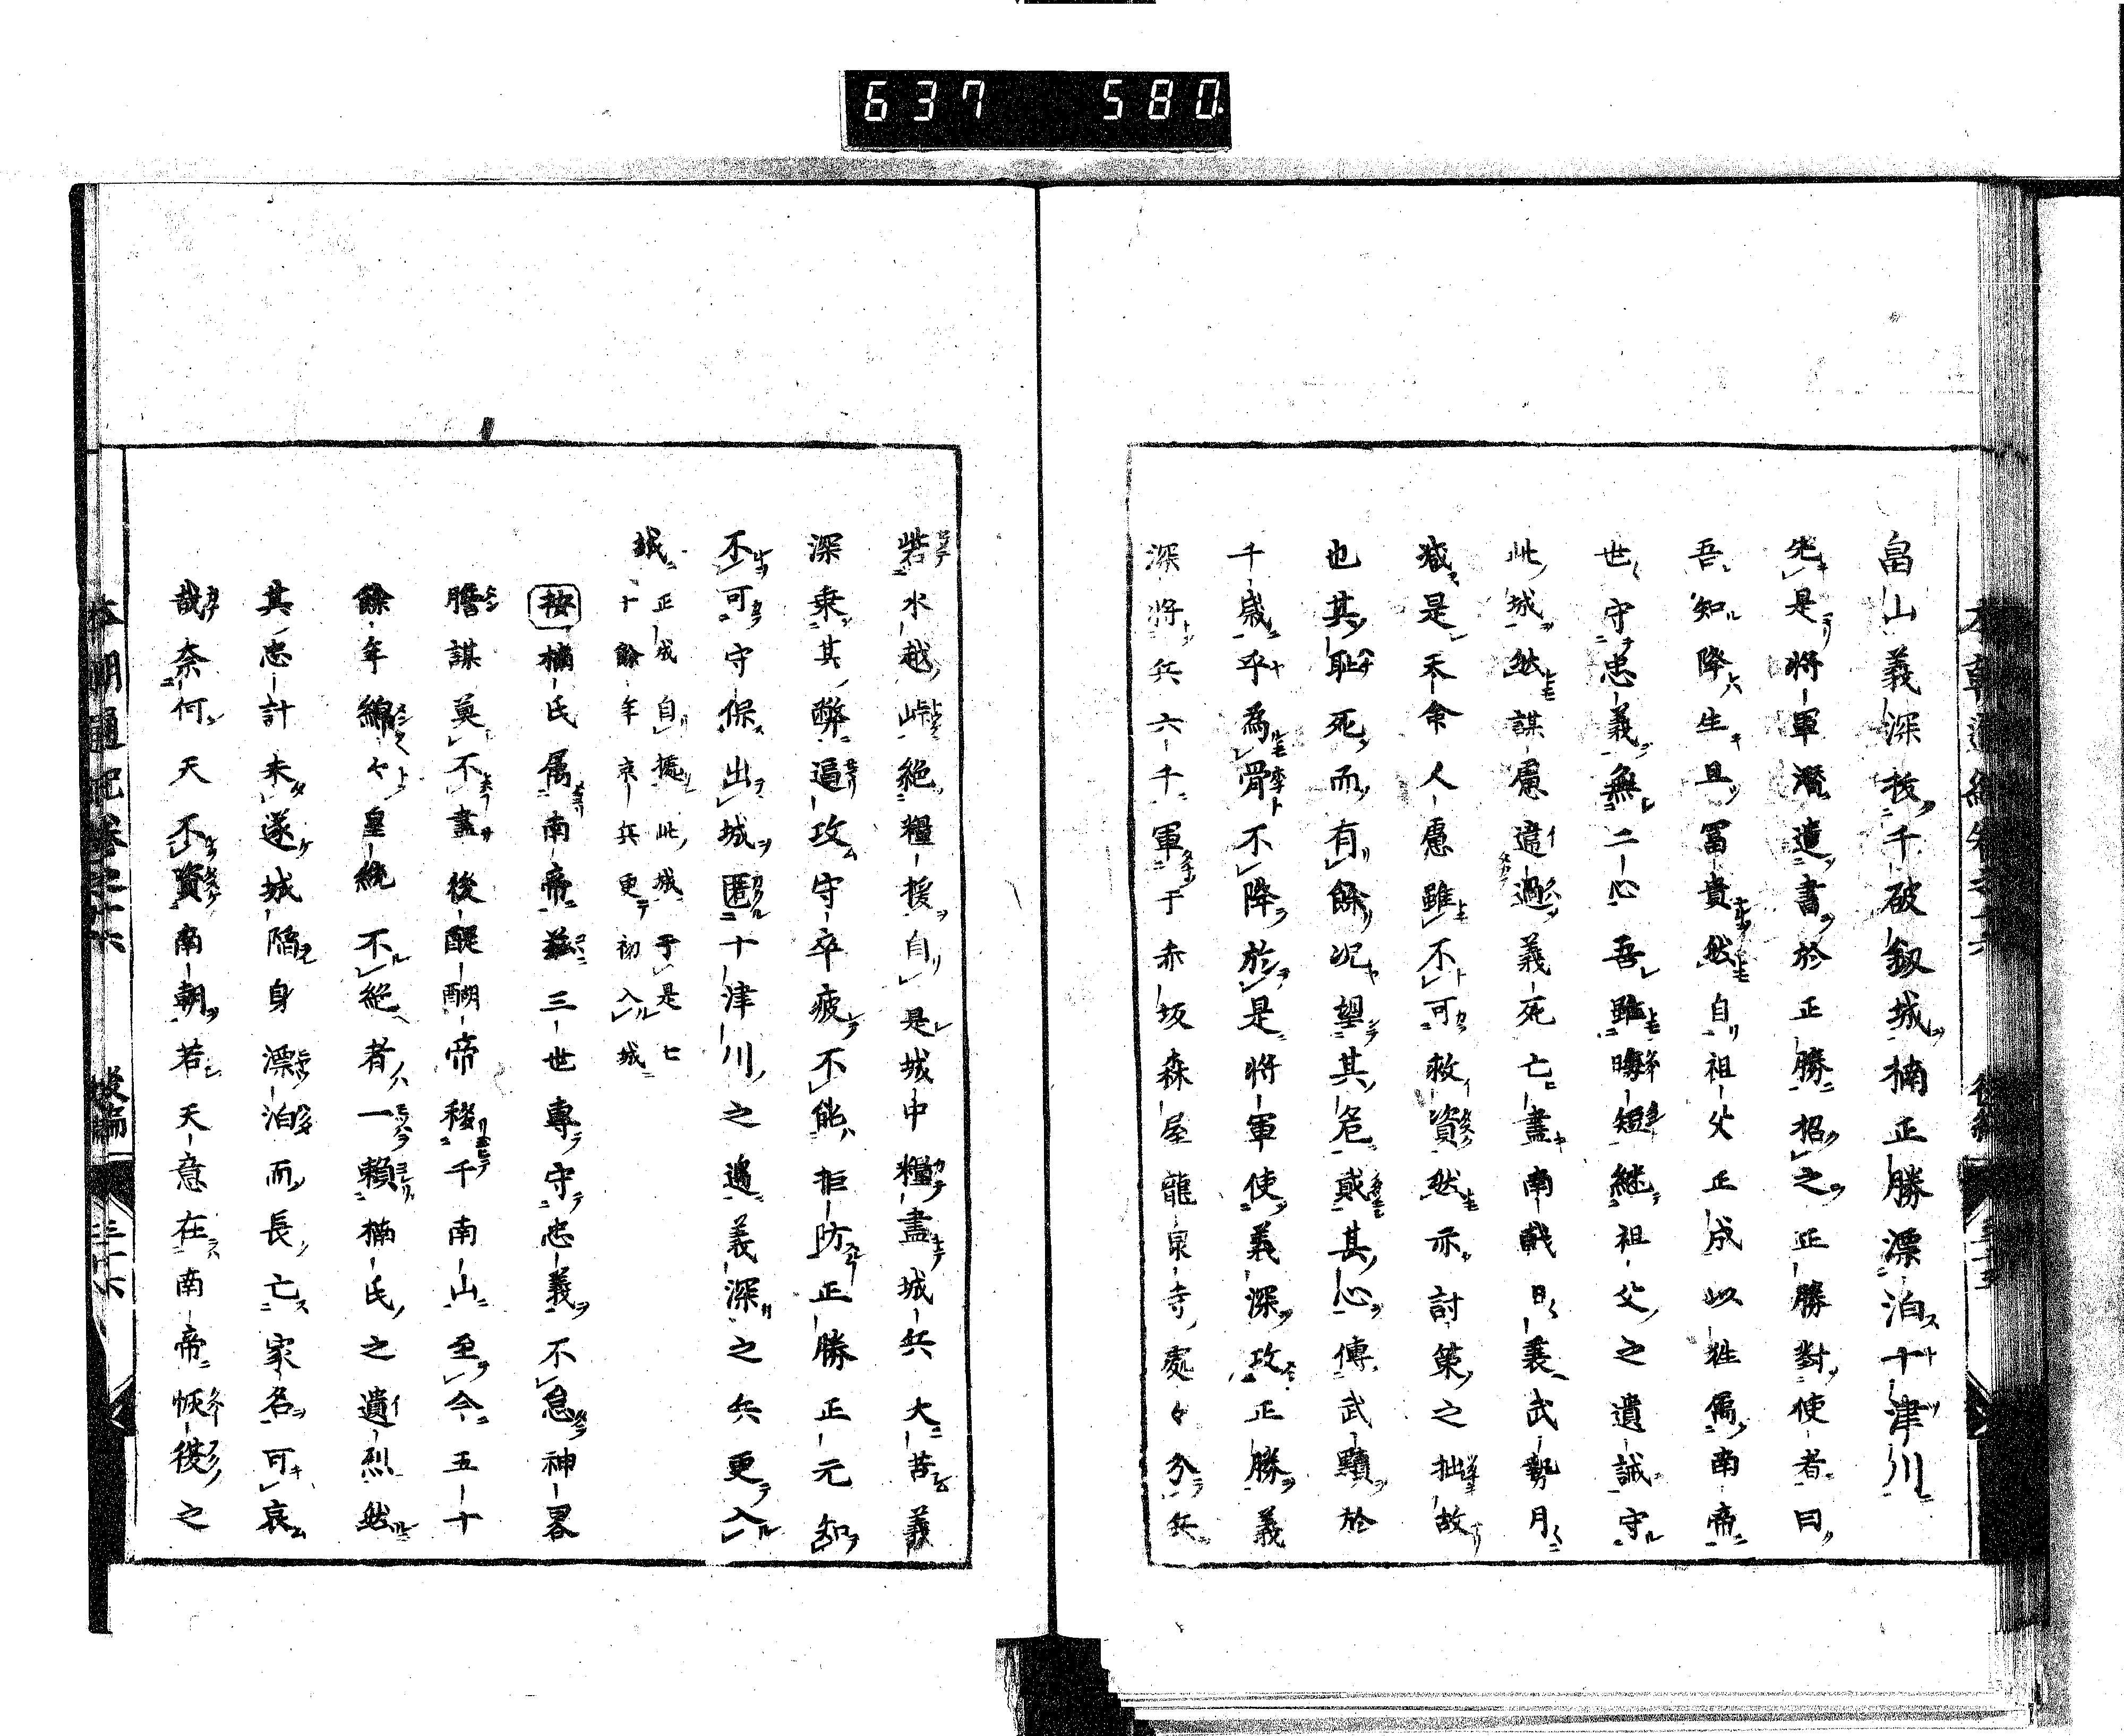 637 580
畠山義深抜千破釼城楠正勝漂泊十津川
先是將軍潜遣書於正勝招之正勝對使者曰
吾知降六生且冨貴然自祖父正成以姓属南帝
世守忠義無二心吾雖晦短継祖父之遺誡守
此城然謀慮違過義死亡盡南戟日襄武勢月
减是天命人慮雖不可救資然亦討策之拙故
也其恥死而有餘况望其危貳其心傳武黷於
千歳乎為骨不降於是將軍使義深攻正勝義
深將兵六千軍于赤坂森屋龍泉寺處々分兵
砦水越峠絶糧援自是城中糧盡城兵大苦義
深乗其弊逼攻守卒疲不能拒防正勝正元知
不可守保出城匿十津川之邉義深之兵更入
城
正成自據此城于是七
十餘年京兵更初入城
按楠氏属南帝茲三世專守忠義不怠神畧
膽謀莫不盡後醍醐帝移千南山至今五十
餘年綿々皇統不絶者一頼楠氏之遺烈然
其忠計未遂城陥身漂泊而長亡家名可哀
哉奈何天不資南朝若天意在南帝恢復之
本朝通紀巻之十六 後編 三十六